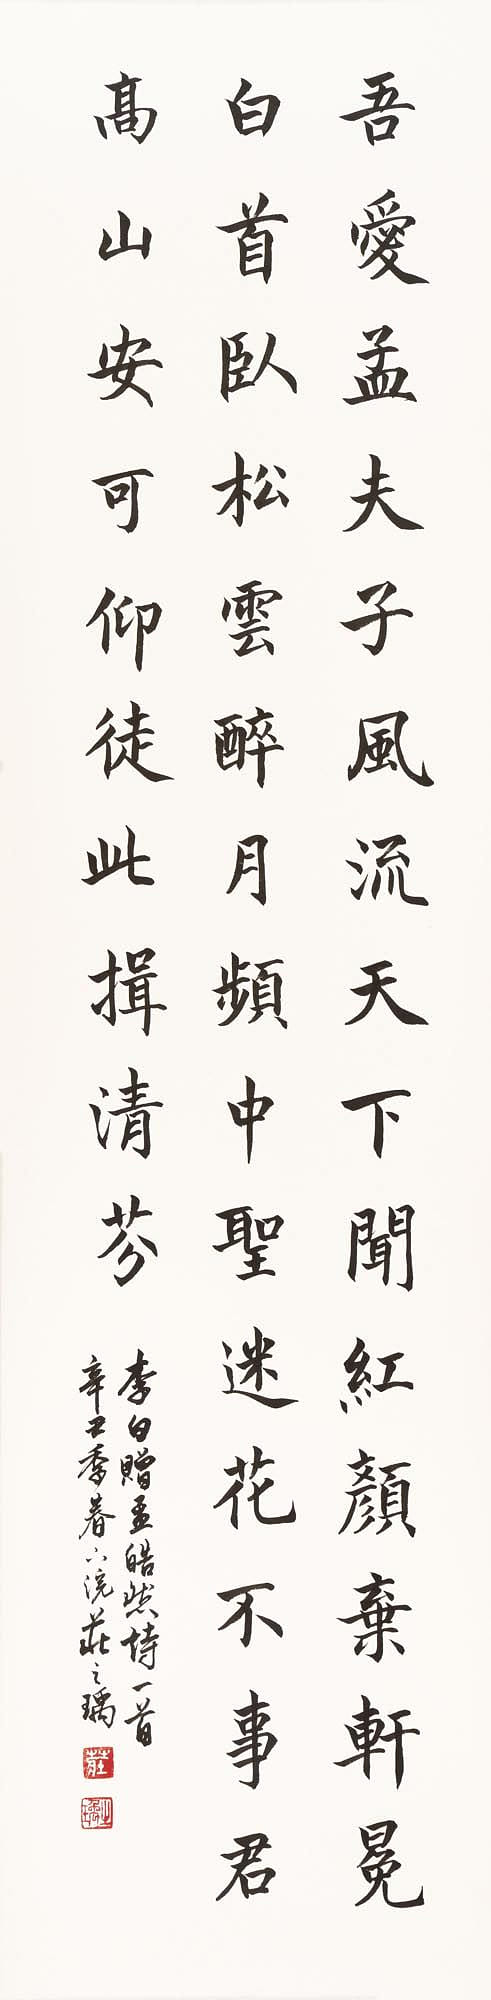 吾愛孟夫子風流天下聞紅顏棄軒冕
白首臥松雲醉月頻中聖迷花不事君
髙山安可仰徒此揖清芬
李白贈孟皓然詩一首
辛丑季春下浣莊之瑀
莊